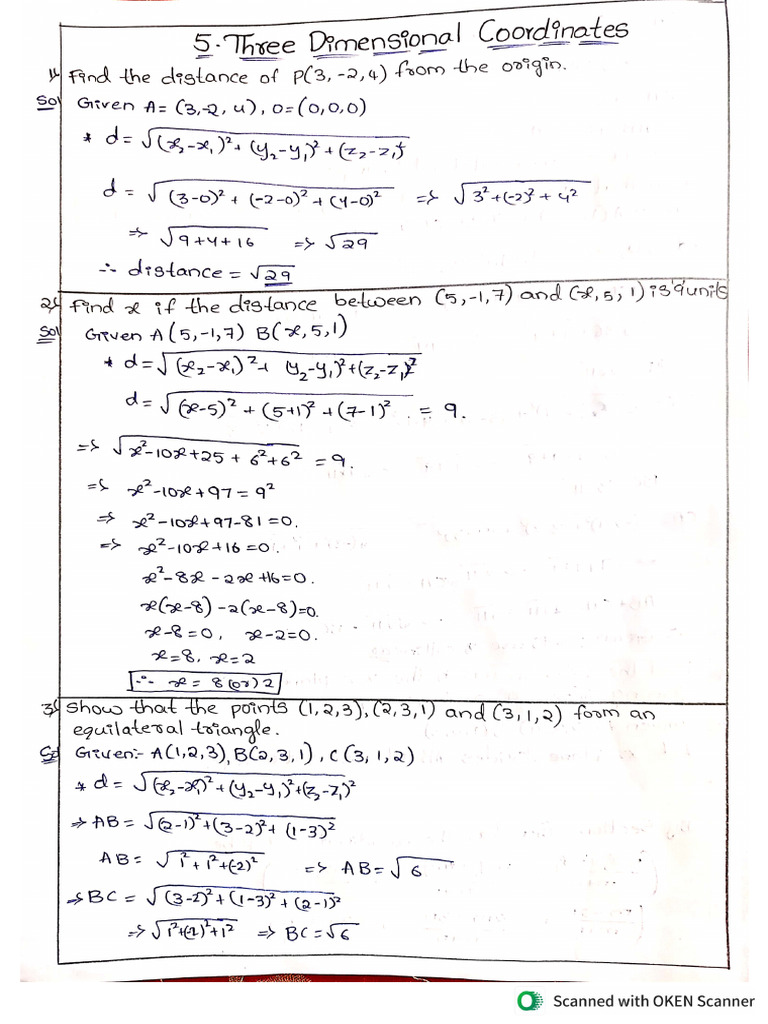 5. Three Dimensional Coordinates
1) Find the distance of P(3, -2, 4) from the origin.
Sol Given A = (3, -2, 4), O = (0, 0, 0)
* d = √(x₂-x₁)² + (y₂-y₁)² + (z₂-z₁)²
d = √(3-0)² + (-2-0)² + (4-0)² => √3² + (-2)² + 4²
=> √9+4+16 => √29
∴ distance = √29
2) Find x if the distance between (5, -1, 7) and (x, 5, 1) is 9 units
Sol Given A(5, -1, 7) B(x, 5, 1)
* d = √(x₂-x₁)² + (y₂-y₁)² + (z₂-z₁)²
d = √(x-5)² + (5+1)² + (7-1)² = 9.
=> √x²-10x+25 + 6²+6² = 9.
=> x²-10x+97 = 9²
=> x²-10x+97-81 = 0.
=> x²-10x+16 = 0.
x²-8x-2x+16 = 0.
x(x-8)-2(x-8) = 0.
x-8 = 0, x-2 = 0.
x = 8, x = 2
∴ x = 8 (or) 2
3) Show that the points (1, 2, 3), (2, 3, 1) and (3, 1, 2) form an
equilateral triangle.
Sol Given:- A(1, 2, 3), B(2, 3, 1), C(3, 1, 2)
* d = √(x₂-x₁)² + (y₂-y₁)² + (z₂-z₁)²
=> AB = √(2-1)² + (3-2)² + (1-3)²
AB = √1² + 1² + (-2)² => AB = √6
=> BC = √(3-2)² + (1-3)² + (2-1)²
=> √1² + (-2)² + 1² => BC = √6
Scanned with OKEN Scanner